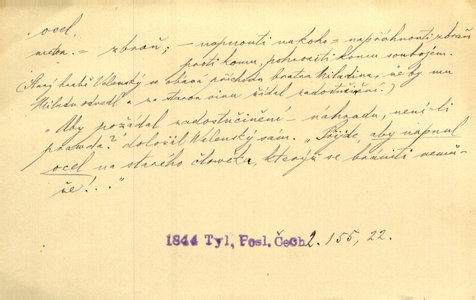 ocel
meton. = zbraň; – napnouti na koho = napřáhnouti zbraň
proti komu, pohroziti komu soubojem.
(Starý hrabě Valenský se obává příchodu bratra Miladina, že by mu
Miladu odvedl a za starou vinu žádal zadostučinění:)
„Aby požádal zadostučinění – náhradu, není-li
pravda?" doložil Valenský sám. „Přijde, aby napnul
ocel na starého človeka, který se brániti nemů-
že!..."
1844 Tyl, Posl. Čech 2. 155, 22.